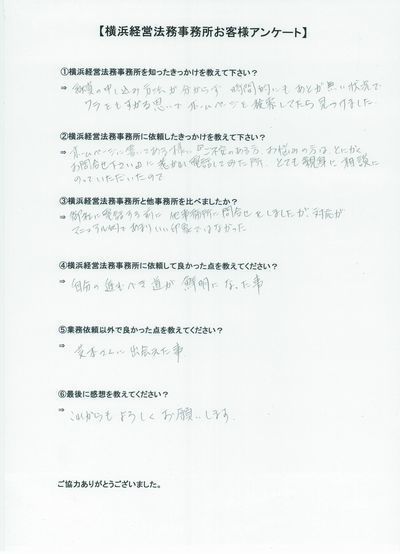 【横浜経営法務事務所お客様アンケート】
①横浜経営法務事務所を知ったきっかけを教えて下さい？
⇒ 融資の申し込み方法が分からず 時間的にもあとが無い状況で
ワラをもすがる思いで ホームページを検索してたら見つけました
②横浜経営法務事務所に依頼したきっかけを教えて下さい？
⇒ ホームページに書いてある様に ご不安のある方、お悩みの方は、とにかく
お問合せ下さい に 電話してみた所、とても親身に相談に
のっていただいたので
③横浜経営法務事務所と他事務所を比べましたか？
⇒ 御社に電話する前に 他事務所に問合せをしましたが、対応が
マニュアル的であまりいい印象ではなかった
④横浜経営法務事務所に依頼して良かった点を教えてください？
⇒ 自分の進むべき道が 鮮明になった事
⑤業務依頼以外で良かった点を教えてください？
⇒ さんに出会えた事
⑥最後に感想を教えてください？
⇒ これからもよろしくお願いします.
ご協力ありがとうございました。